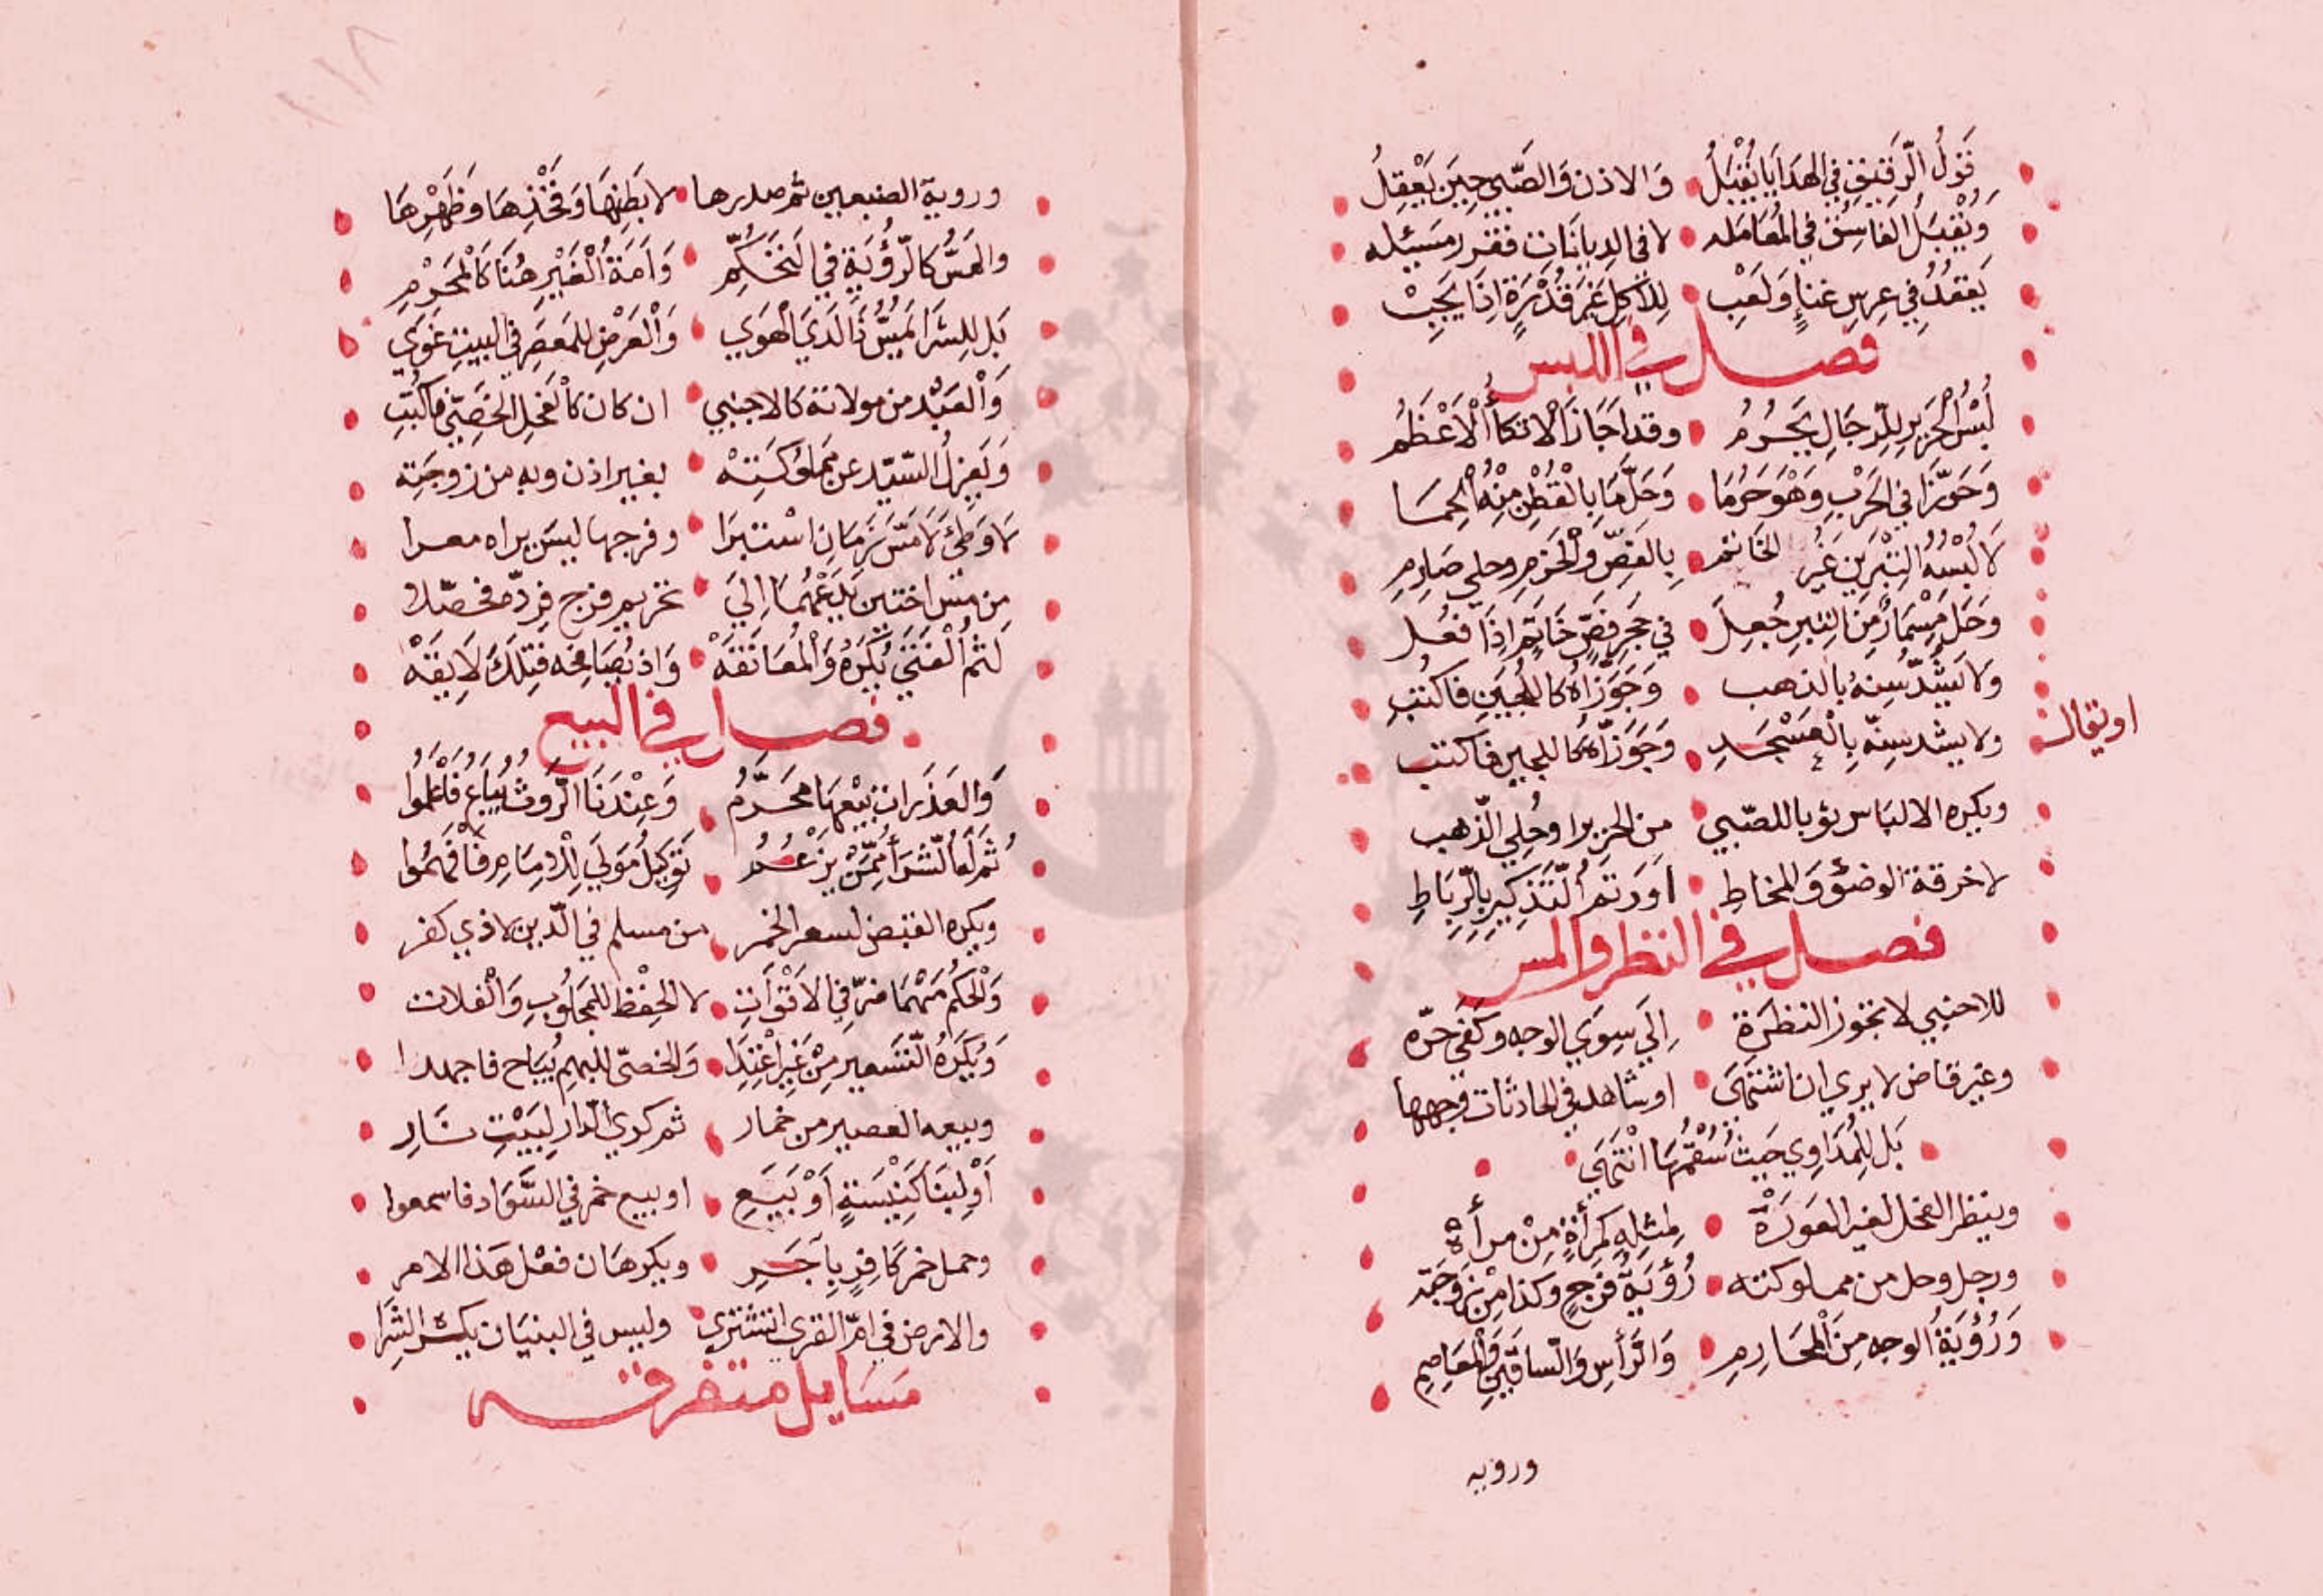 قَوْلُ الرَّقِيقِ فِي الهَدَايَا يُقْبَلُ وَالاذن وَالصَّبِي حِيَن يَعْقِلُ
وَيُقْبَلُ الفَاسِقُ فِي المُعَامَله لا في الدِيانَات فقرر مَسَيئله
يَقعُدُ فِي عِرسٍ غنَاءٍ وَلَعِب لِلأكِلِ غَيَر قُدْرَةٍ اِذَا يَجِبْ
فصل في اللبس
لُبْسُ الْحَرَيرِ لِلرِّجَالِ يَحْرُمُ وقد اَجَازَ الاتكَأَ الْاَعْظَمُ
وَجَوَّزَا فِي الحَرْبِ وَهْوَ حَرَّمَا وَحَلَّ مَا بِالقُطْنِ مِنْهُ اُلْحِمَا
لَا لُبْسُهُ التِبْرَينِ غَيُر الخَاتم بِالفَصِّ وَالْحَزمِ وحلي صَارِمِ
وَحَلَ مِسْمَارٌ مِنَ التِبرِ جُعِلَ فِي حَجَرِ فَصِّ خَاتَمٍ اِذَا فعُل
وَلا يَشُدّ سِنهُ بالذهب وَجَوَّزَاهُ كَاللُجَيَن فاكتُب
ولا يشد سِنّه بِالْعَسْجَدِ وَجَوَزَّاهُ كَاللجين فاكتب
او يقال
ويكره الالبَاس ثوبا للصّبي من الحرير او حُلِي الذّهب
لا خرقة الوضُؤ وَالمخاطِ اَو رَتمُ التَّذكِيِر بِالرِّبَاطِ
فصل في النظر والمس
للاجنبي لا تجوز النظرَة اِلَي سِوَي الوجه وكَفَّي حرّه
وغير قاض لا يري ان اشتَهَي او شاهد في الحادثات وجهها
بَل لِلمُدَاوِي حَيث سُقْمُهَا انْتَهَي
وينظر الفحل لغير العَورَةْ مِثلِهِ كَمرأةٍ مِنْ مرأةْ
ورجل وحل من مملوكته رُؤيَةُ فرَجٍ وكذا مِنْ زَوجَته
وَرُؤيَةُ الوجه مِنَ المَحَارِمِ وَالرَّأسِ وَالسّاقَيِن وَالمعَاصِمِ
ورويه
وروية الضبعين ثم صدرها لا بَطنِهَا وَفَخْذِهَا وَظَهْرِهَا
والمَسُّ كالرُّؤيَةِ فِي التَحَكُّمِ وَاَمَةُ الغَيْرِ هُنَا كَالْمَحْرَمِ
بَل لِلشِرَا لَمَسُّ ذَا لَدَيَ الْهَوَي وَالْعَرْضِ للمَعصَر فِي البيت غوَي
وَالْعَبْد من مولاته كالاجنبي ان كان كالفَحِل الخَصِيّ فاكتُبِ
وَيَعزِلُ السّيّد عن مَملوُكَتِهْ بغير اذن وبهِ من زوجَتِه
لَا وَطئَ لَا مَسّ زَمَانِ اسْتبرَا وفرجها ليسَ يراه معرا
مِن مَسّ اختَين تحريم فرج فردّ فحصّلا
لَثمُ الْفَتَي يُكرَهُ وَالْمُعَانَقَهْ وَاذ يُصَافِحَه فتِلكَ لَايِقَهْ
فصل في البيع
وَالعَذرَات بَيْعُهَا مُحَرَّمُ وَعِنْدَنَا الرَّوثُ يُبَاعُ فَاعْلَمُوا
ثُمَ لَهَا الشرَأ مِمَّنْ يَزعُمُ تَوكِيلُ مَولَي لِلْاِمَامِ فَافهَمُوا
ويكره القبض لسعر الخمر من مسلم في الدّين لا ذي كفر
وَالحكر مَهْمَا ضرّ فِي الاَقْوَاتِ لا الحِفْظ للمَجلُوبِ وَالْغلات
وَيُكَرهُ التّسعير مِنْ غَيرِ اعْتِدَا وَالخصيّ للبهم يُبَاح فاجهدا
وبيعه العصير من خمار ثم كري الدّار لِبَيْتِ نَارِ
اَوْ لِبِنَا كَنِيْسَةٍ اَوْ بَيَعِ او بيع خمر فِي السَّوَاد فاسمعوا
وحمل خمر كَافِرٍ بِآجَرِ ويكرهَان فعْل هَذا الامر
والارض في امّ القري لتشتري وليس في البنيَان يكره الشرَا
مَسَايل متفرقه